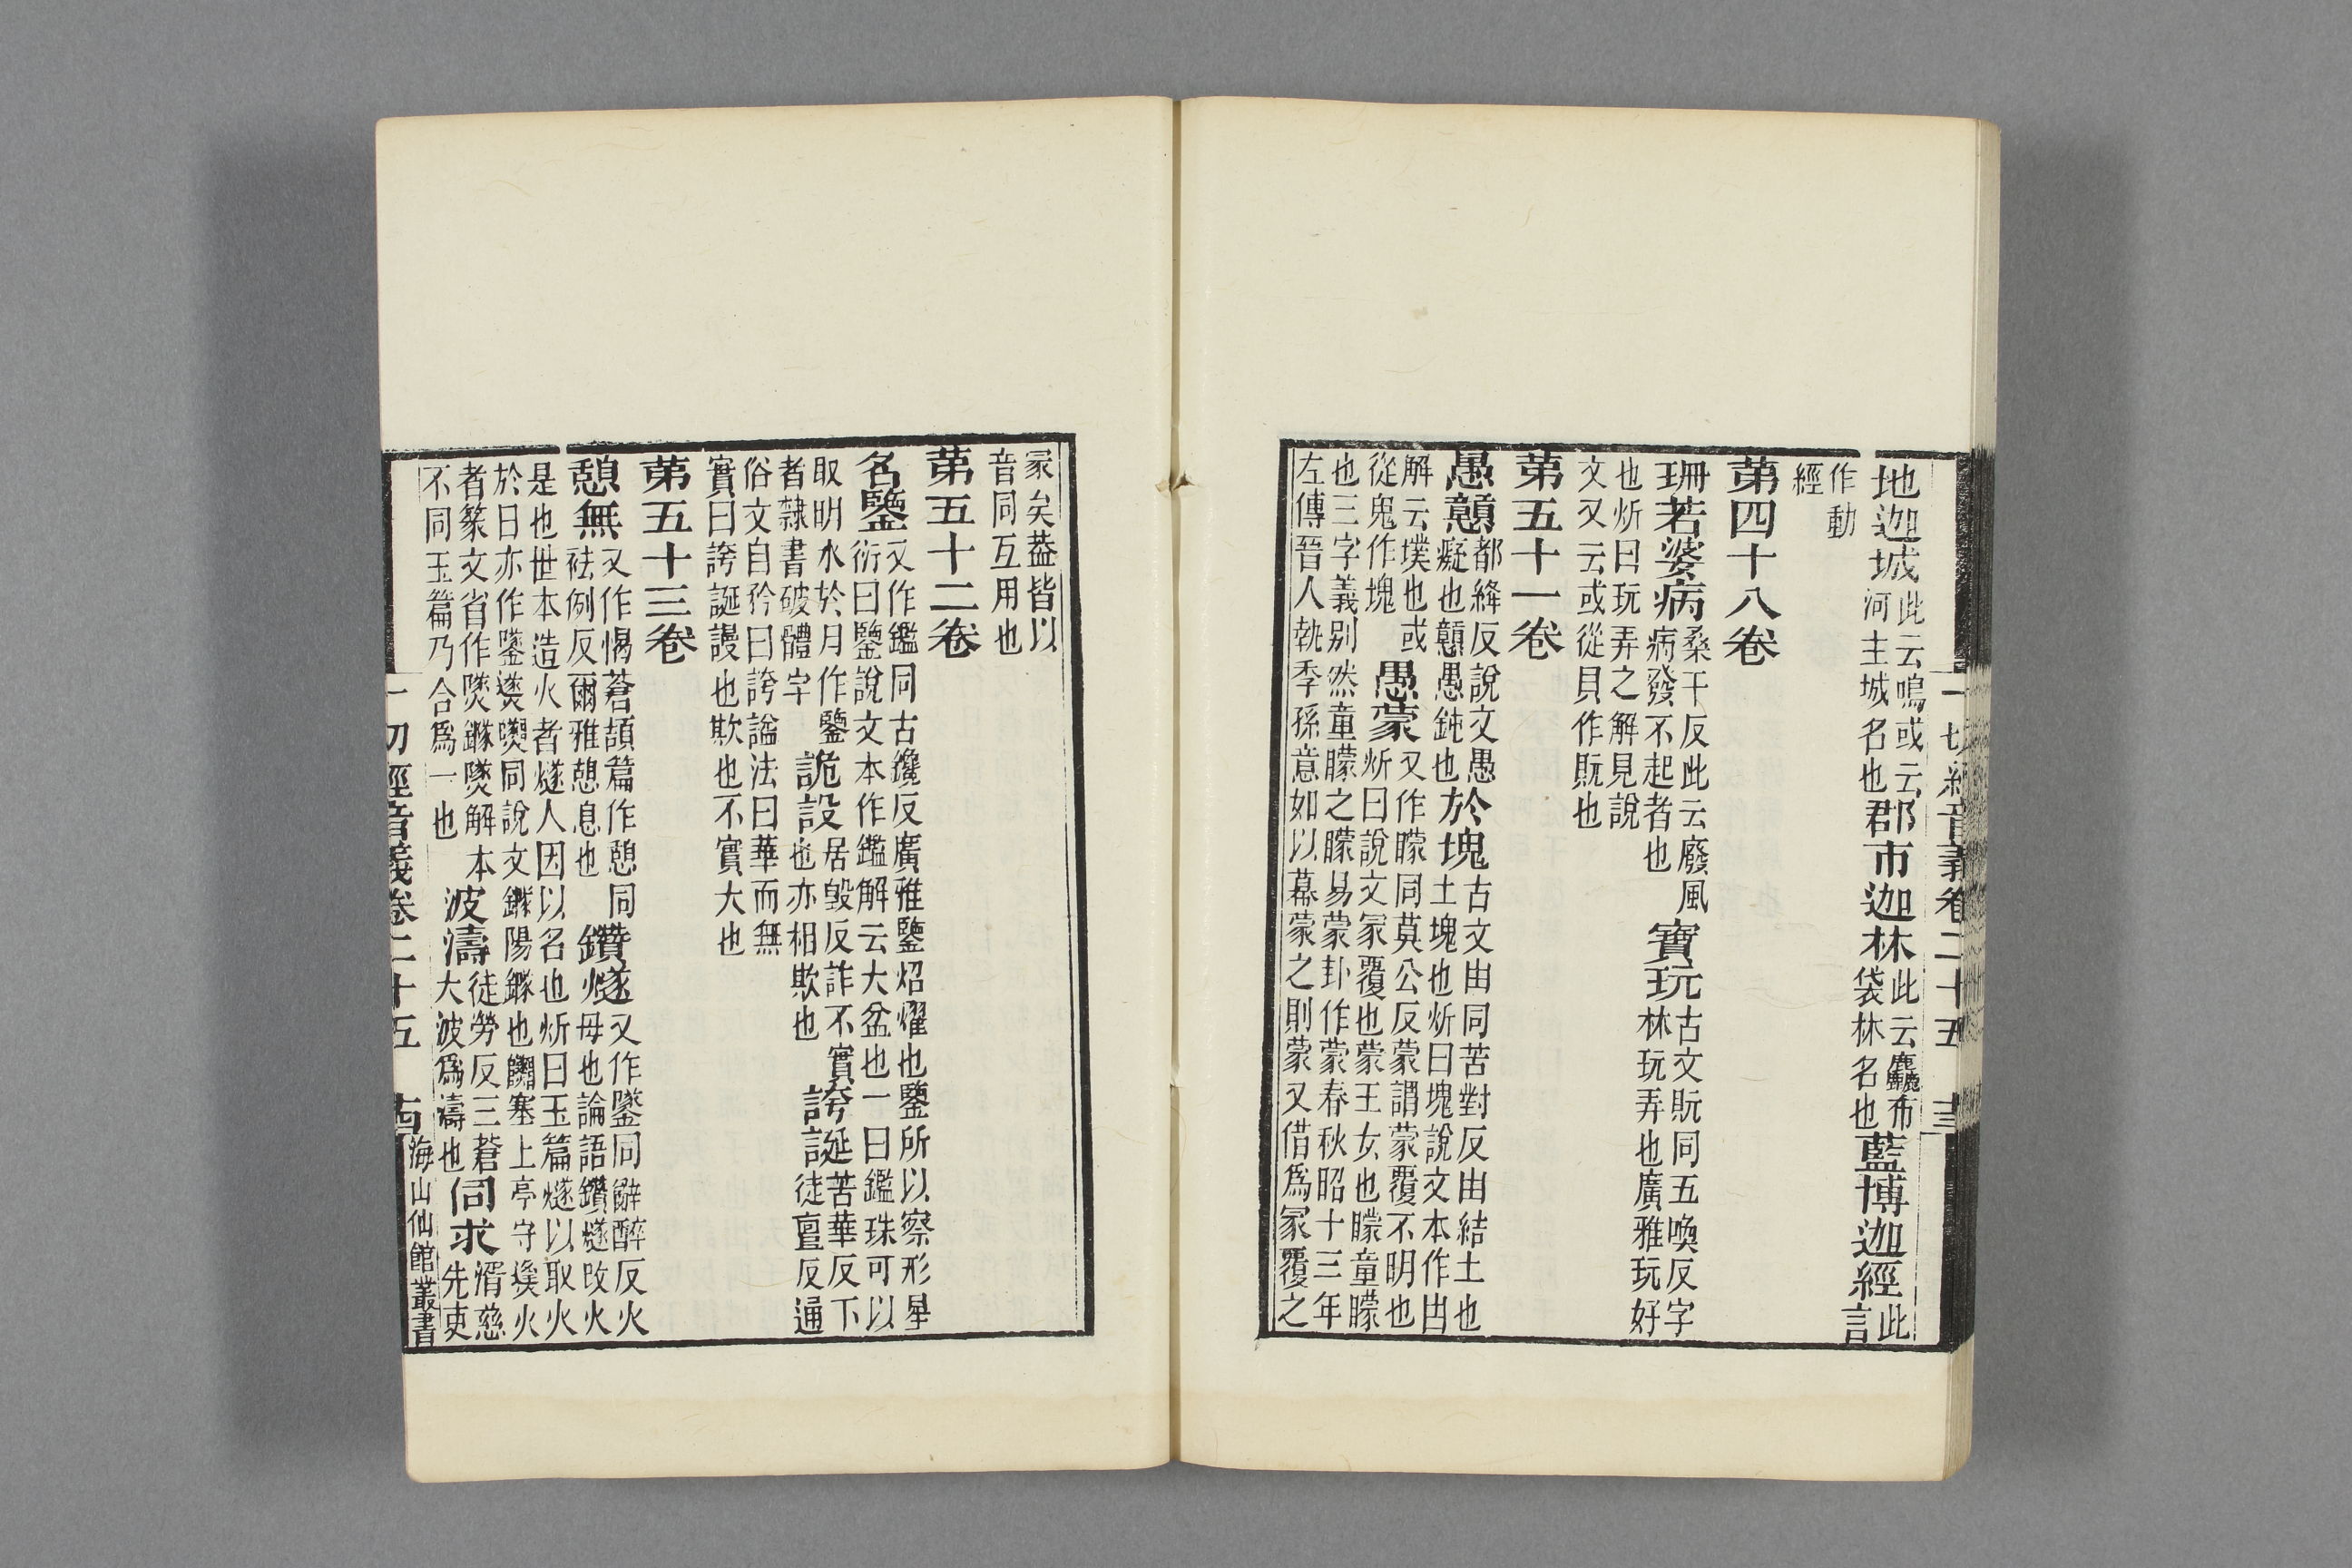 一切經音義卷二十五 十三
地迦城此云鳴或云河主城名也郡市迦林此云麤布袋林名也藍博迦經此言
作動經
第四十八卷
珊若婆病桑干反此云廢風病發不起者也寶玩古文貦同五喚反字林玩弄也廣雅玩好
也炘曰玩弄之解見說文又云或從貝作貦也
第五十一卷
愚戇都絳反說文愚癡也戇愚鈍也於塊古文凷同苦對反凷結土也土塊也炘曰塊說文本作凷
解云墣也或從鬼作塊愚蒙又作矇同莫公反蒙謂蒙覆不明也炘曰說文冡覆也蒙王女也矇童矇
也三字義別然童矇之矇易蒙卦作蒙春秋昭十三年左傳晉人執季孫意如以幕蒙之則蒙又借爲冡覆之
冡矣葢皆以音同互用也
第五十二卷
名鑒又作鑑同古鑱反廣雅鑒炤燿也鑒所以察形星衍曰鑒說文本作鑑解云大盆也一曰鑑珠可以
取明水於月作鑒者隸書破體字詭設居毀反詐不實也亦相欺也誇誕苦華反下徒亶反通
俗文自矜曰誇謚法曰華而無實曰誇誕謾也欺也不實大也
第五十三卷
憩無又作愒蒼頡篇作憩同袪例反爾雅憩息也鑽燧又作鐆同辭醉反火母也論語鑽燧改火
是也世本造火者燧人因以名也炘曰玉篇燧以取火於日亦作鐆䥙同說文鐆陽鐆也塞上亭守㷭火
者篆文省作鐆解本不同玉篇乃合爲一也波濤徒勞反三蒼大波爲濤也伺求湑慈先吏
一切經音義卷二十五 十四 海山仙館叢書